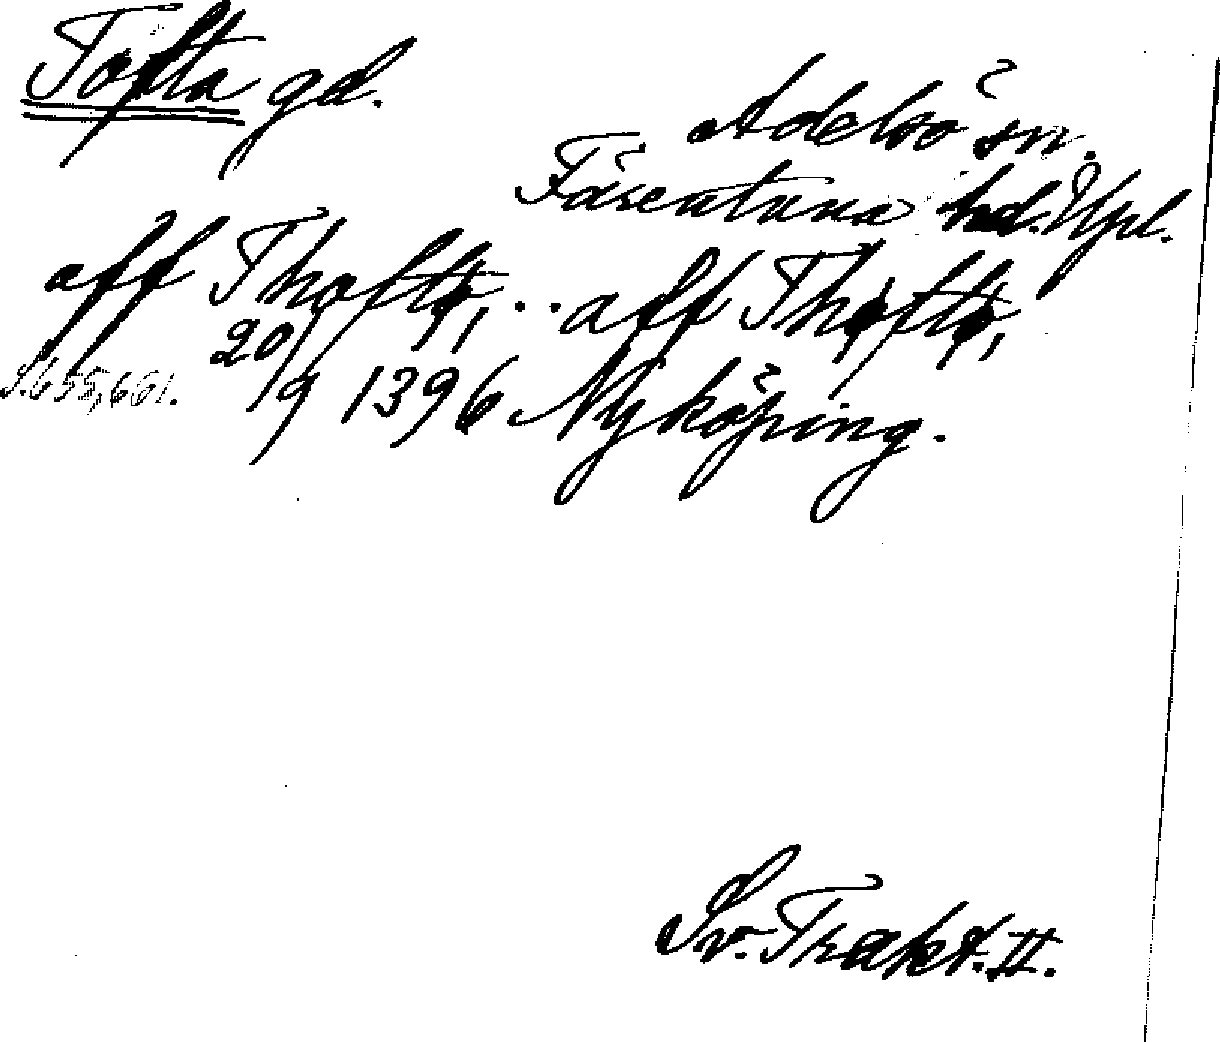 Tofta gd.
Adelsö sn.
Färentuna hd. Upl.
aff Thoftø, .. aff Thøftø,
S. 655, 661. 20/9 1396 Nyköping.
Sv. Trakt. II.